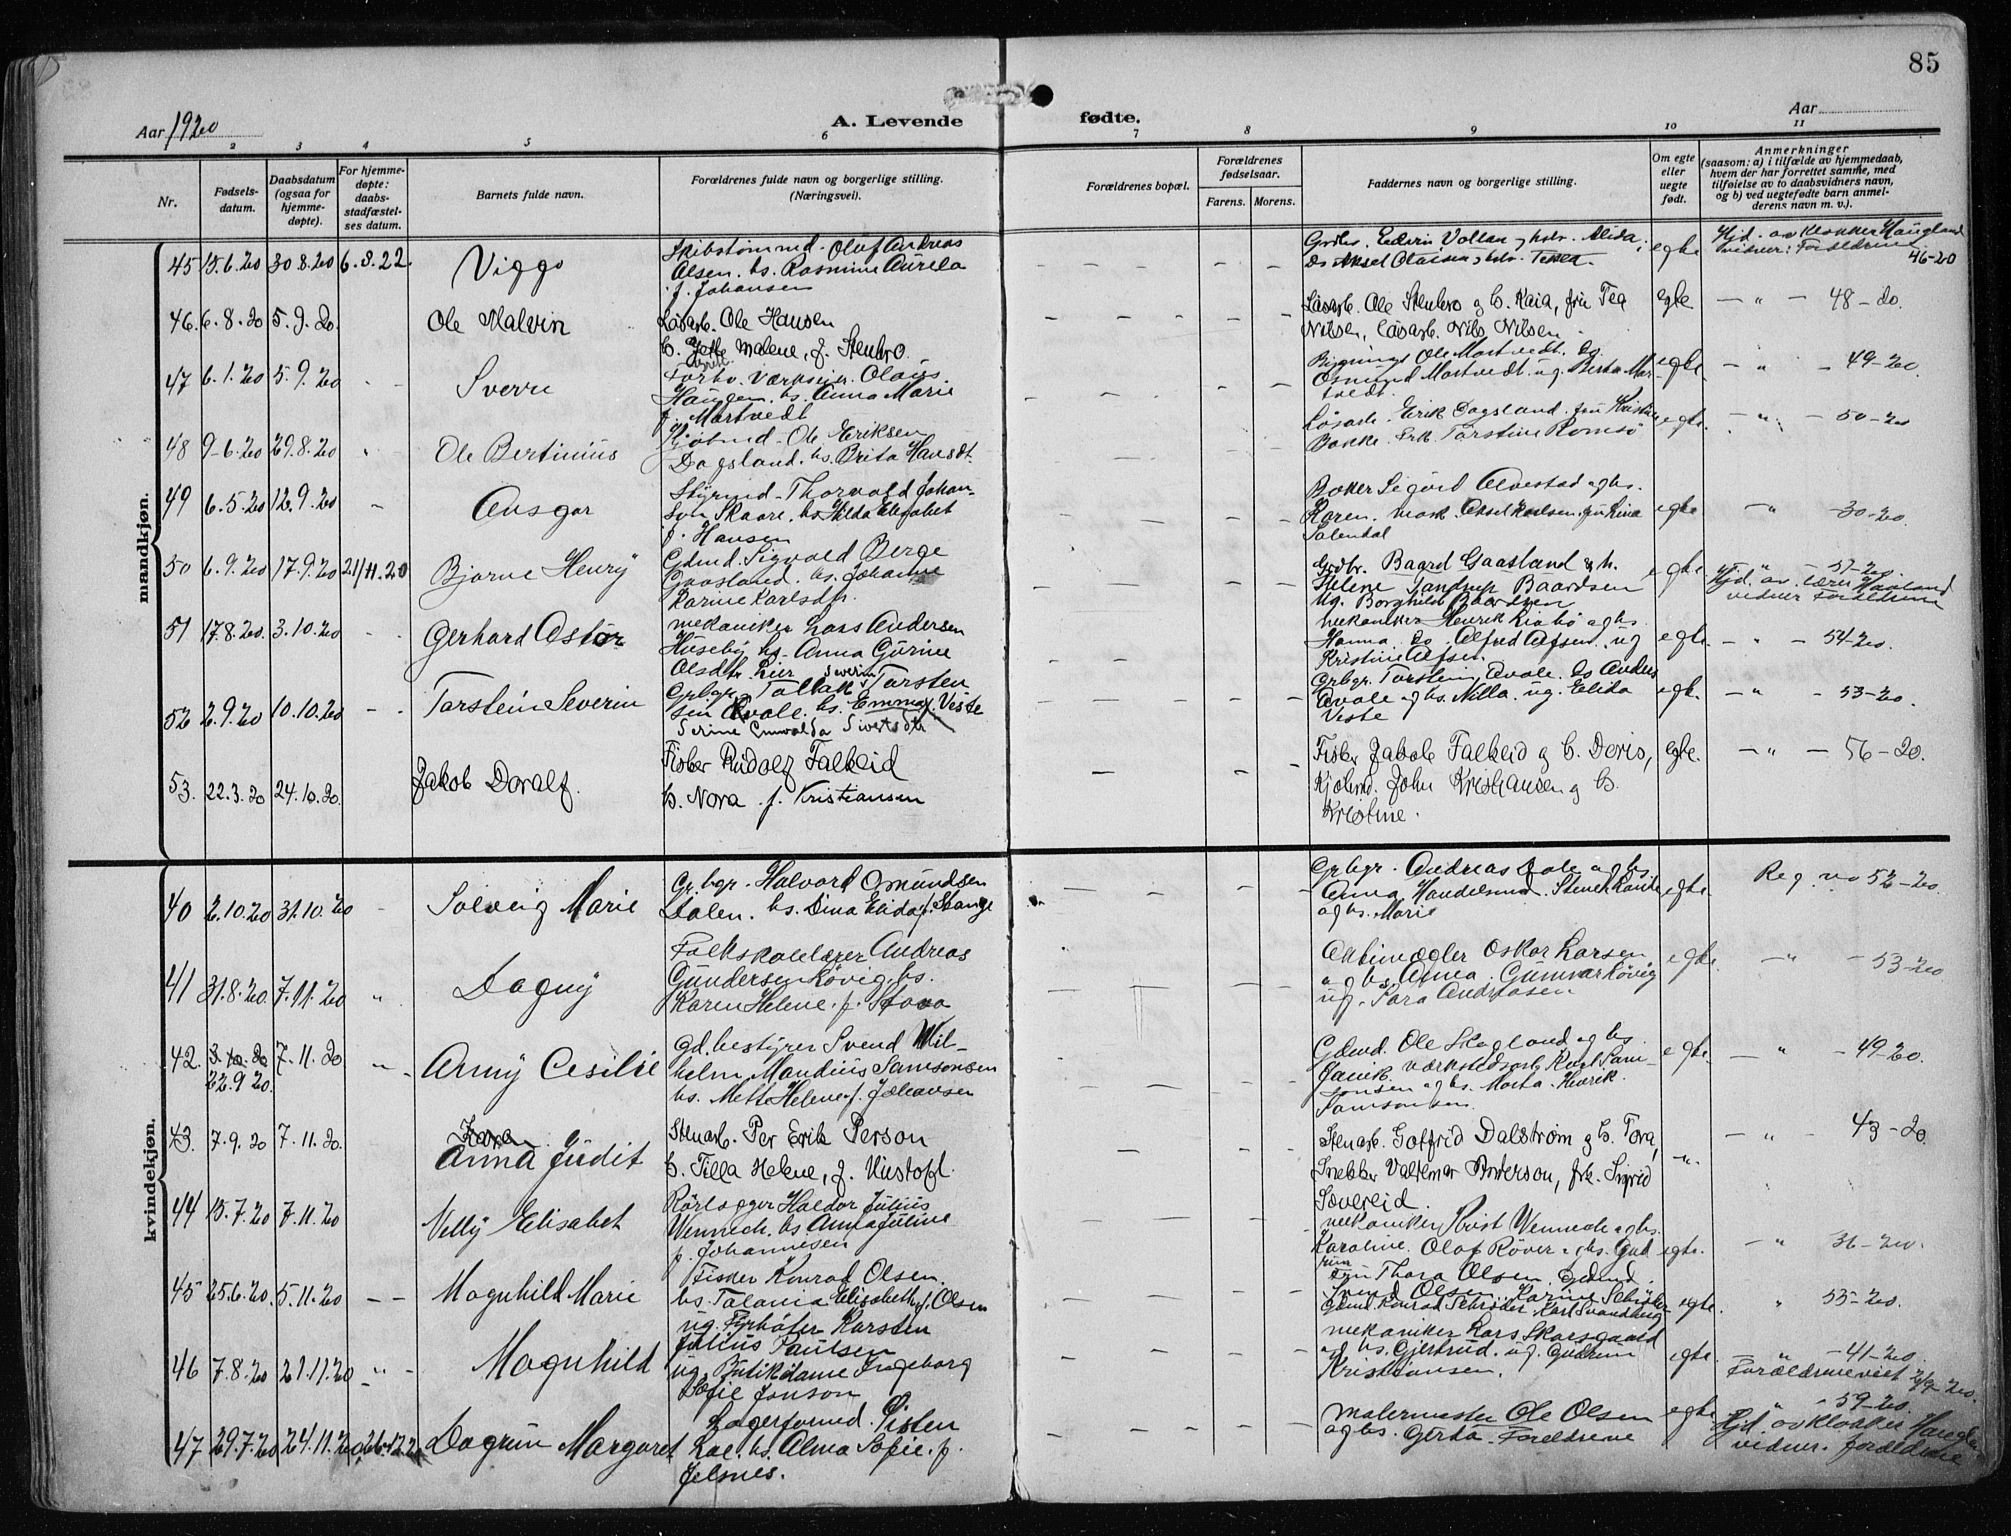 85
Aar 1920
A. Levende fødte.
Aar
2 3 4 5 6 7 8 9 10 11
Nr.
Fødsels-datum.
Daabsdatum (ogsaa for hjemme-døpte).
For hjemme-døpte: daabs-stadfæstel-ses datum.
Barnets fulde navn.
Forældrenes fulde navn og borgerlige stilling. (Næringsvei).
Forældrenes bopæl.
Forældrenes fødselsaar.
Farens. Morens.
Faddernes navn og borgerlige stilling.
Om egte eller uegte født.
Anmerkninger
(saasom: a) i tilfælde av hjemmedaab,
hvem der har forrettet samme, med
tilføielse av to daabsvidners navn,
og b) ved uegtefødte barn anmel-
derens navn m. v.).
mandkjøn.
45 15.6.20 30.8.20 6.3.22 Viggo
Skibstømmd. Olaf Andreas
Olsen. hs. Rasmine Aurela
f. Johansen
egte
Hjd. av klokker Haugland
vidner: Forældrene
46-20
46. 6.8.20 5.9.20. Ole Malvin
Løsarb. Ole Hansen
h. Jette Malene, f. Stenbro.
Løsarb. Ole Stenbro og h. Kaia, fru Tea
Nilsen, løsarb. Nils Nilsen
egte — " — 48-20.
47 6.1.20 5.9.20 Sverre
Forhv. Værkseier. Olaus
Haugen. hs. Anna Marie
f. Mortvedt
Ole Mortvedt.
Osmund Mortvedt. ug. Berta Mor-
tvedt.
egte. — " — 49-20.
48 9-6.20 29.8.20 Ole Bertinius
Ole Eriksen
Dagsland. hs. Brita Hansdt.
Løsarb. Erik Dagsland. fru Kristine
Bakke. Frk. Torstine Romsö
egte. — " — 50-20
49 6.5.20 12.9.20 Ansgar
Styrmd. Thorvald Johan-
sen Skaare. hs. Hilda Elisabet
f. Hansen
Baker Sigurd Alvestad og hs.
Karen. mask. Aksel Karlsen. fru Lina
Salendal
egte — " — 30-20.
50 6.9.20 17.9.20 21/11.20 Bjarne Henry
Gdmd. Sigvald Berge
Gaasland. hs. Johanne
Karine Karlsdtr.
Grdbr. Baard Gaasland & h.
Helene Tandrup Baardsen
Ug. Borghild Baardsen
egte 57-20
Hjd. av. lærer Haugland
vidner Forældrene
51 17.8.20. 3.10.20 Gerhard Astor
mekaniker Lars Andersen
Huseby hs. Anna Gurine
Olsdtr. Lier
mekaniker Henrik
Hanna. Alfred Alfsen. ug
Kristine Alfsen.
egte — " — 54-20.
52 2.9.20 10.10.20 Torstein Severin
Grbgr. Tallak Severin Torsten
sen Kvale. hs. Emma f. Viste
Serine Emvalda Sivertsdtr
Grbgr. Torstein Kvale. Anders
Kvale og hs. Nilla. ug. Elida
Viste
egte. — " — 53-20.
53. 22.3.20 24.10.20. Jakob Doralf.
Fisker Rudolf Falkeid
h. Nora f. Kristiansen
Fisker Jakob Falkeid og h. Doris,
Kjølmd. John Kristiansen og h.
Kristine.
egte. — " — 56-20.
kvindekjøn.
40 2.10.20 31.10.20 Solveig Marie
Gr.bgr. Halvard Omundsen
Dalen. hs. Dina Elida f. Stange
Gr.bgr. Andreas Dale og hs.
Anna Handelsmd.
og hs. Marie
egte. Reg. no 52-20.
41 31.8.20. 7.11.20 " Dagny
Folkskolelærer Andreas
Gundersen Røvig hs.
Karen Helene. f. Stava
Oskar Larsen
og hs. Anna. Gunnar Røvig
ug. Tora Andreasen
egte. — " — 53-20
42. 3.10.20 22.9.20. 7.11.20 Anny Cesilie
Gd.bestyrer Svend Wil-
helm Mandius Samsonsen
hs. Mette Helene f. Johansen
Gdmd. Ole Skogland og hs.
værkstedsarb. Sam-
sonsen og hs. Marta. Henrik
Samsonsen.
egte. — " — 49-20.
43. 7.9.20 7.11.20. Anna Judit
Stenarb. Per Erik Person
h. Tilla Helene, f.
Stenarb. Gotfrid Dalstrøm og h. Tora,
Snekker Valdemar Anderson, frk. Sigrid
Sovereid.
" — " — 43-20.
44 15.7.20 7.11.20 Nelly Elisabet
Rørlegger Haldor Julius
Wennech. hs. Anna Juline
f. Johannesen
mekaniker Krist Wennech og hs.
Karoline. Olaf Røver og hs. Gud
run
egte. — " — 36-20.
45 25.6.20. 5.11.20 Magnhild Marie
Fisker Konrad Olsen.
hs. Talania Elisabeth f. Olsen
Fru Thora Olsen. Gdmd.
Svend Olsen. Karine
Gdmd. Konrad Schrøder. Karl Svandberg
egte. " 55-20.
46 7.8.20 21.11.20 Magnhild
ug. Fyrbøter Karsten
Julius Paulsen
ug. Butikdame Ingeborg
Sofie Jonson
mekaniker Lars Skarsgaard
og hs. Gjertrud. ug. Gudrun
Kristiansen.
egte. — " — 41-20
Forældrene viet
47 29.7.20 24.11.20 26.12.2 Dagrun Margaret
Lagerformd.
hs. Alma Sofie f.
Jelsnes.
Malermester Ole Olsen
og hs. Gerda. Forældrene
egte " 59-20.
Hjd. av klokker Haugland
vidner. forældrene